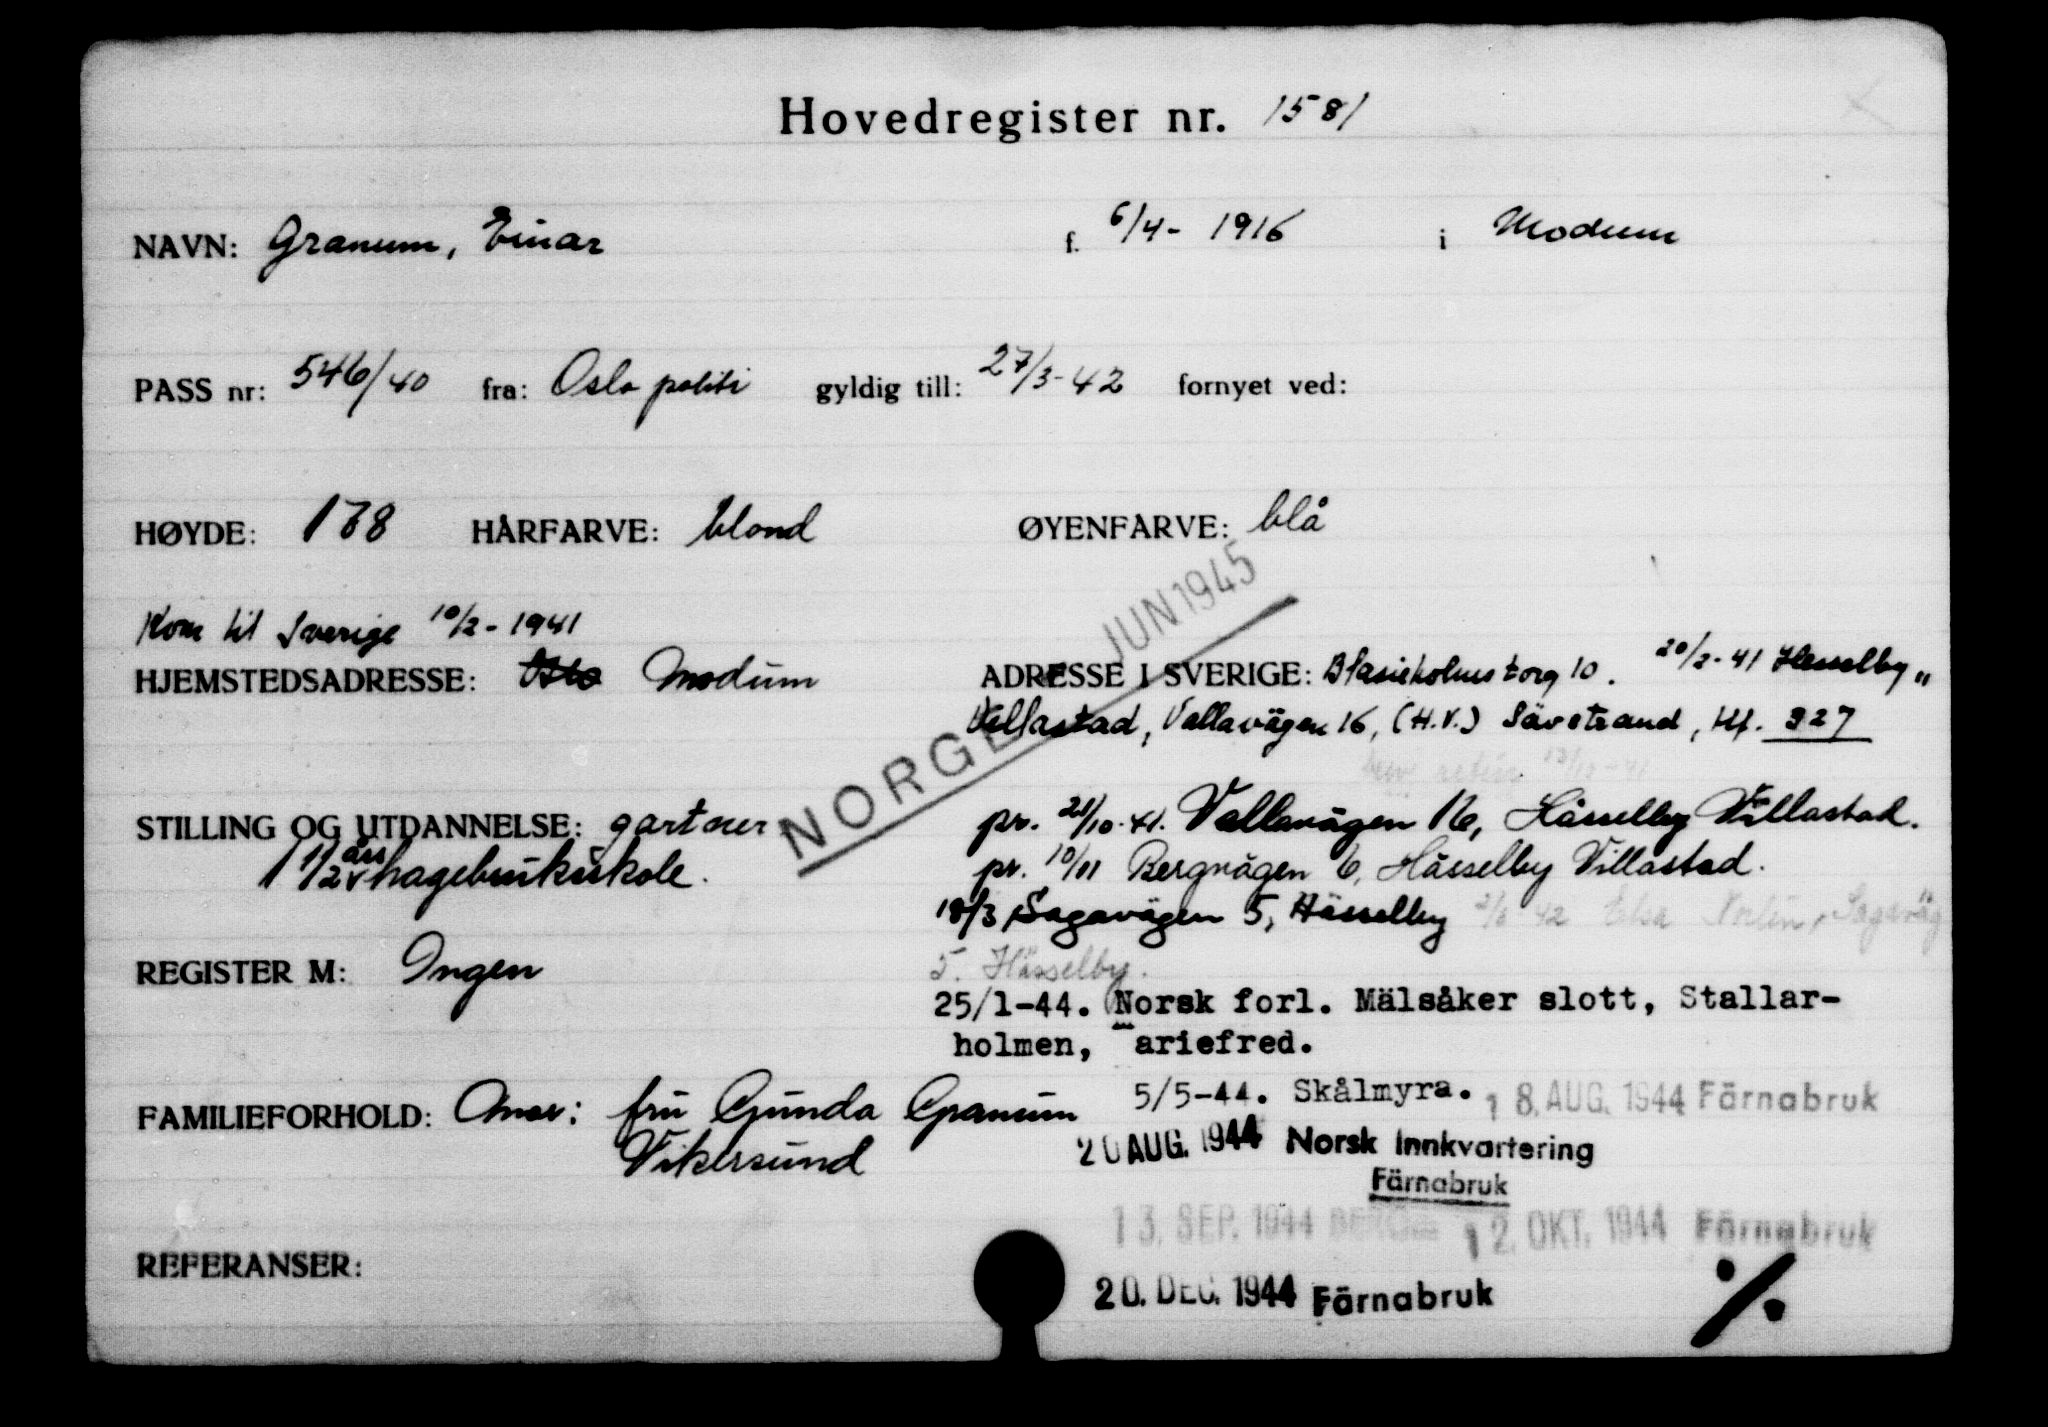 Hovedregister nr. 1581
NAVN: Granum, Einar f. 6/4- 1916 i Modum
PASS nr: 546/40 fra: Oslo politi gyldig till: 27/3-42 fornyet ved:
HØYDE: 178 HÅRFARVE: blond ØYENFARVE: blå
JUN 1945
NORGE
Kom til Sverige 10/2-1941
HJEMSTEDSADRESSE: Oslo Modum
ADRESSE I SVERIGE: Blasieholmstorg 10. 20/2-41 Hesselby
Villastad, Vallavägen 16, (H.V.) Sävstrand, tlf. 327
13/10-41
STILLING OG UTDANNELSE: gartner
1 1/2 års hagebrukskole.
pr. 21/10.41. Vallavägen 16, Hässelby Villastad.
pr. 10/11 Bergvägen 6, Hässelby Villastad.
18/3 Sagavägen 5, Hässelby 2/6 42 Elsa Norlin, Sagaväg
5. Hässelby.
REGISTER M: Ingen
25/1-44. Norsk forl. Mälsåker slott, Stallar-
holmen, Mariefred.
5/5-44. Skålmyra. 18. AUG. 1944 Färnabruk
FAMILIEFORHOLD: Mor: fru Gunda Granum
Vikersund
20 AUG. 1944 Norsk Innkvartering
Färnabruk
13. SEP. 1944 12. OKT. 1944 Färnabruk
REFERANSER:
20. DEC. 1944 Färnabruk
%